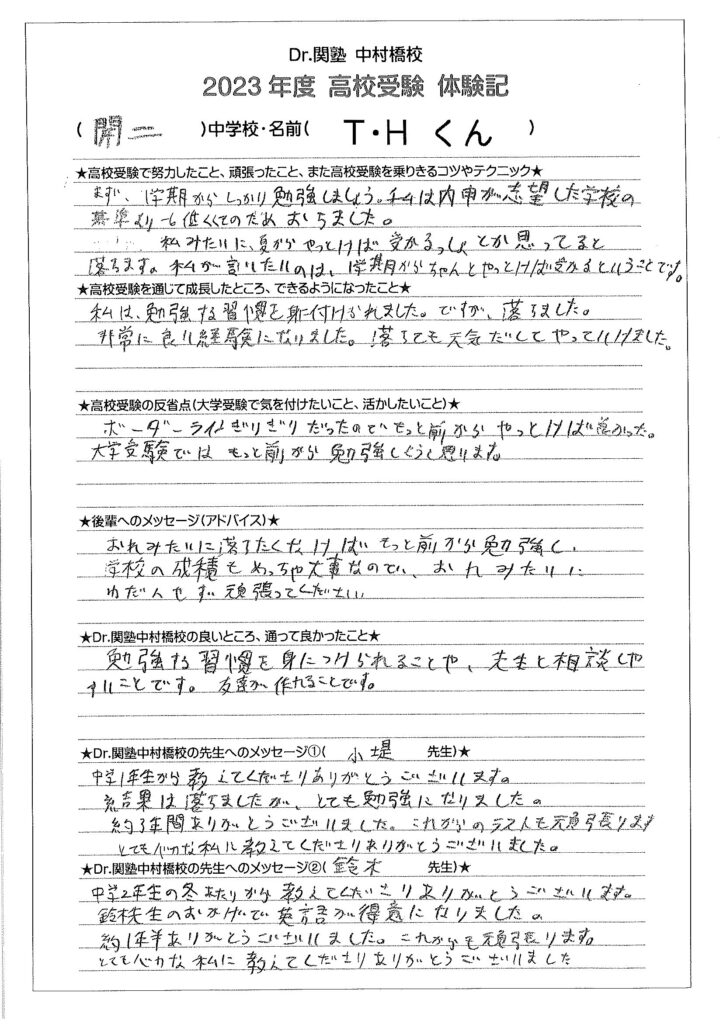 Dr.関塾 中村橋校
2023年度 高校受験 体験記
( 開二 )中学校・名前( T・H くん )
★高校受験で努力したこと、頑張ったこと、また高校受験を乗りきるコツやテクニック★
まず、学期からしっかり勉強しましょう。私は内申が志望した学校の
基準より-6低くてのため おちました。
私みたいに、夏からやっとけば受かるっしょとか思ってると
落ちます。私が言いたいのは、学期からちゃんとやっとけば受かるということです。
★高校受験を通じて成長したところ、できるようになったこと★
私は、勉強する習慣を身に付けられました。ですが、落ちました。
非常に良い経験になりました。落ちても元気だしてやっていけました。
★高校受験の反省点(大学受験で気を付けたいこと、活かしたいこと)★
ボーダーラインぎりぎりだったのでもっと前からやっとけば良かった。
大学受験では もっと前から勉強しようと思います。
★後輩へのメッセージ(アドバイス)★
おれみたいに落ちたくなければもっと前から勉強し、
学校の成績もめっちゃ大事なので、おれみたいに
ゆだんせず頑張ってください
★Dr.関塾中村橋校の良いところ、通って良かったこと★
勉強する習慣を身につけられることや、先生と相談しや
すいことです。友達が作れることです。
★Dr.関塾中村橋校の先生へのメッセージ①( 小堤 先生)★
中学1年生から教えてくださりありがとうございます。
結果は落ちましたが、とても勉強になりました。
約3年間ありがとうございました。これからのラストも頑張ります
とてもバカな私に教えてくださりありがとうございました。
★Dr.関塾中村橋校の先生へのメッセージ②( 鈴木 先生)★
中学2年生の冬あたりから教えてくださりありがとうございます。
鈴木先生のおかげで英語が得意になりました。
約1年半ありがとうございました。これからも頑張ります。
とてもバカな私に教えてくださりありがとうございました